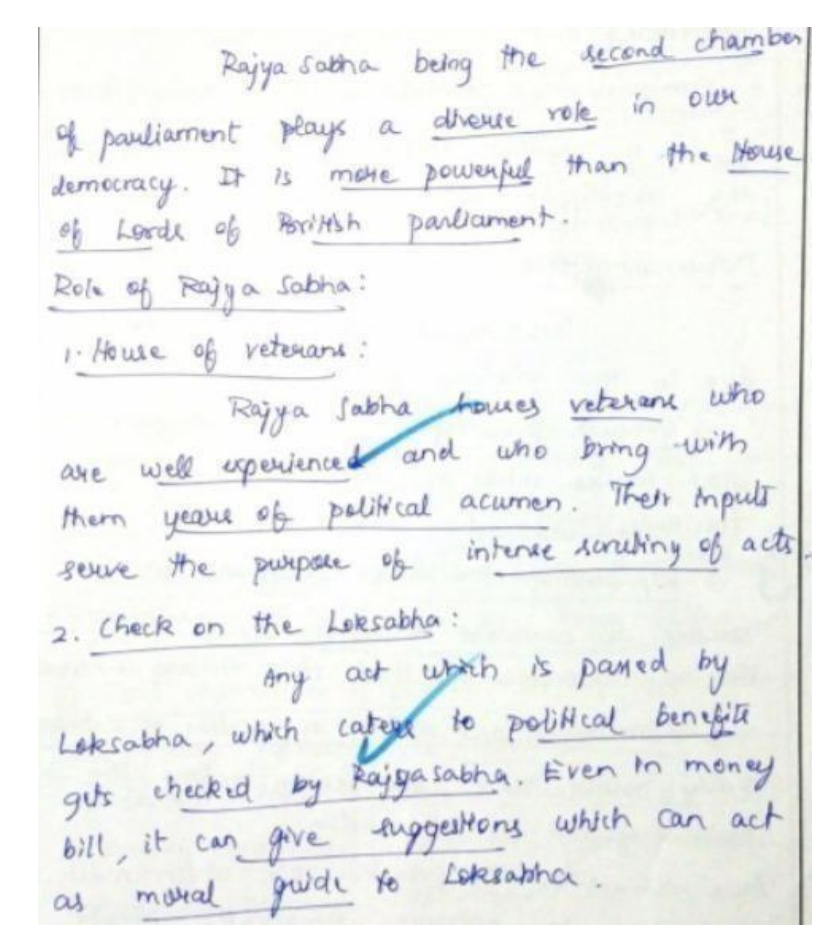 Rajya Sabha being the second chamber
of parliament plays a diverse role in our
democracy. It is more powerful than the House
of Lords of British parliament.
Role of Rajya Sabha:
1. House of veterans:
Rajya Sabha houses veterans who
are well experienced and who bring with
them years of political acumen. Their inputs
serve the purpose of intense scrutiny of acts.
2. Check on the Loksabha:
Any act which is passed by
Loksabha, which caters to political benefits
gets checked by Rajyasabha. Even in money
bill, it can give suggestions which can act
as moral guide to Loksabha.